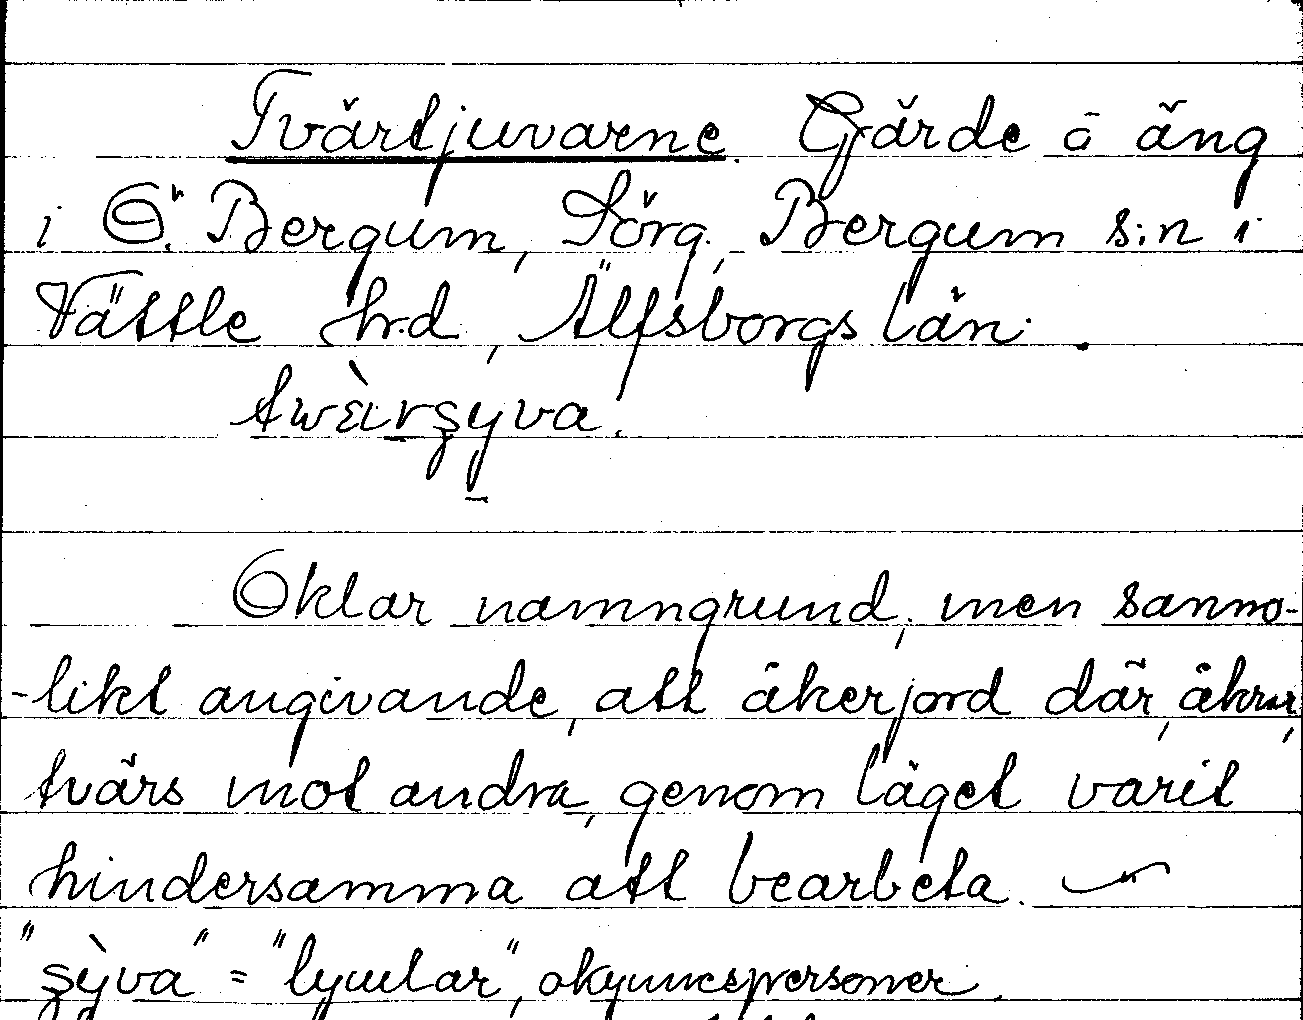 Tvärtjuvarne. Gärde å äng
i Ö. Bergum, Sörg., Bergum s:n i
Vättle h:d, Älfsborgs län.
Oklar namngrund, men sanno-
-likt angivande, att åkerjord där, åkrar,
tvärs mot andra, genom läget varit
hindersamma att bearbeta. –
=